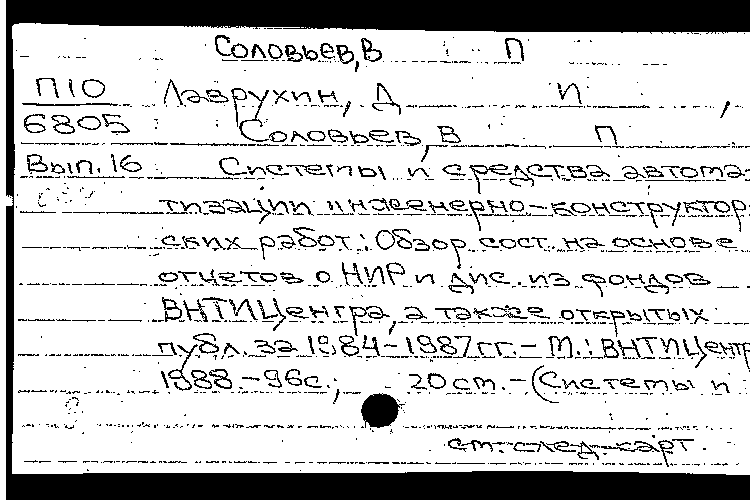 Соловьев, В П
П10 Лаврухин, Д И ,
6805 Соловьев, В П
Вып. 16 Системы и средства автома-
тизации инженерно-конструктор-
ских работ: Обзор сост. на основе
отчетов о НИР и дис. из фондов
ВНТИЦентра, а также открытых
публ. за 1984-1987 гг. - М.: ВНТИЦентр
1988. - 96с.; 20 см. - (Системы и
см. след. карт.